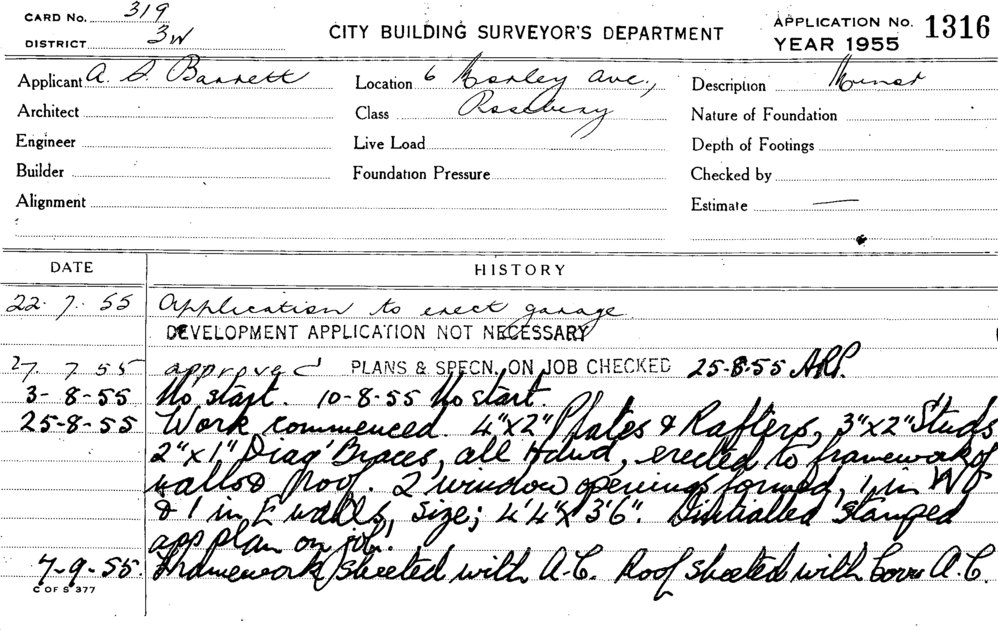 CARD No. 319
DISTRICT 3W
CITY BUILDING SURVEYOR'S DEPARTMENT
APPLICATION No. 1316
YEAR 1955
Applicant A. S. Barrett
Location 6 Morley Ave.,
Description Minor
Architect
Class Rosebery
Nature of Foundation
Engineer
Live Load
Depth of Footings
Builder
Foundation Pressure
Checked by
Alignment
Estimate —
DATE
HISTORY
22. 7. 55 Application to erect garage
DEVELOPMENT APPLICATION NOT NECESSARY
27 7 55 approved PLANS & SPECN. ON JOB CHECKED 25-8-55
3-8-55 No start. 10-8-55 No start.
25-8-55 Work commenced. 4"x2" Plates & Rafters, 3"x2" Studs
2"x1" Diag' Braces, all Hdwd, erected to framework of
walls & Roof. 2 window openings formed, 1 in W
& 1 in E walls, size; 4'4"x3'6". Initialled stamped
app plan on job.
7-9-55. Framework sheeted with A.C. Roof sheeted with Corr A.C.
C OF S 377